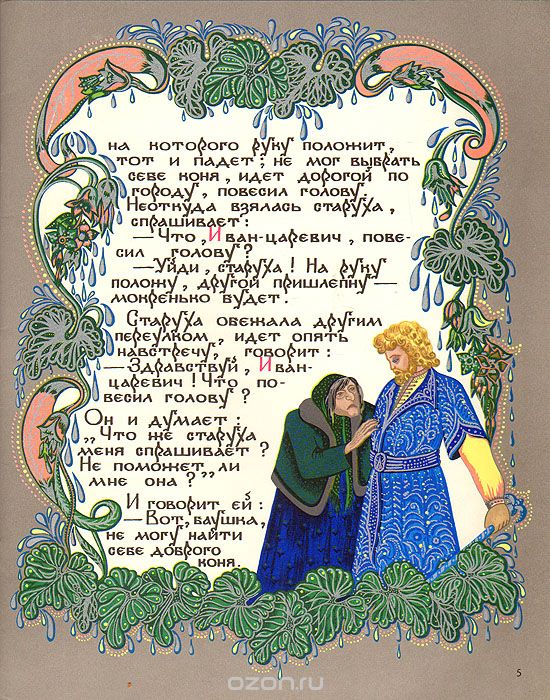 на которого руку положит,
тот и падет; не мог выбрать
себе коня, идет дорогой по
городу, повесил голову.
Неоткуда взялась старуха,
спрашивает:
— Что, Иван-царевич, пове-
сил голову?
— Уйди, старуха! На руку
положу, другой пришлепну —
мокренько будет.
Старуха обежала другим
переулком, идет опять
навстречу, говорит:
— Здравствуй, Иван-
царевич! Что по-
весил голову?
Он и думает:
„Что же старуха
меня спрашивает?
Не поможет ли
мне она?"
И говорит ей:
— Вот, баушка,
не могу найти
себе доброго
коня.
5
ozon.ru